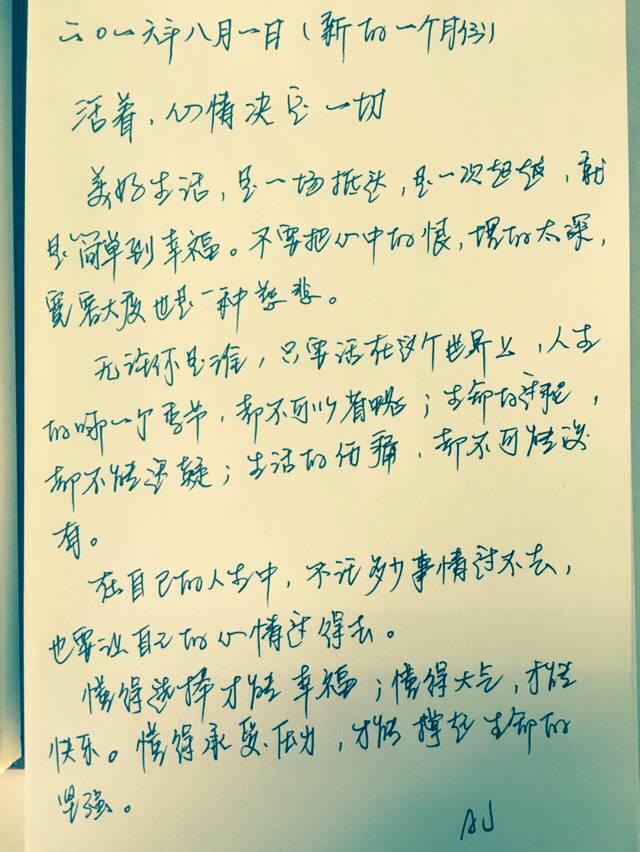 二〇一六年八月一日（新的一个月份）
活着，心情决定一切
美好生活，是一场抵达，是一次超越，就
是简单到幸福。不要把心中的恨，埋的太深，
宽容大度也是一种慈悲。
无论你是谁，只要活在这个世界上，人生
的哪一个季节，都不可以省略；生命的过程，
都不能迟疑；生活的伤痛，都不可能没
有。
在自己的人生中，不论多少事情过不去，
也要让自己的心情过得去。
懂得选择才能幸福；懂得大气，才能
快乐。懂得承受压力，才能撑起生命的
坚强。
AJ